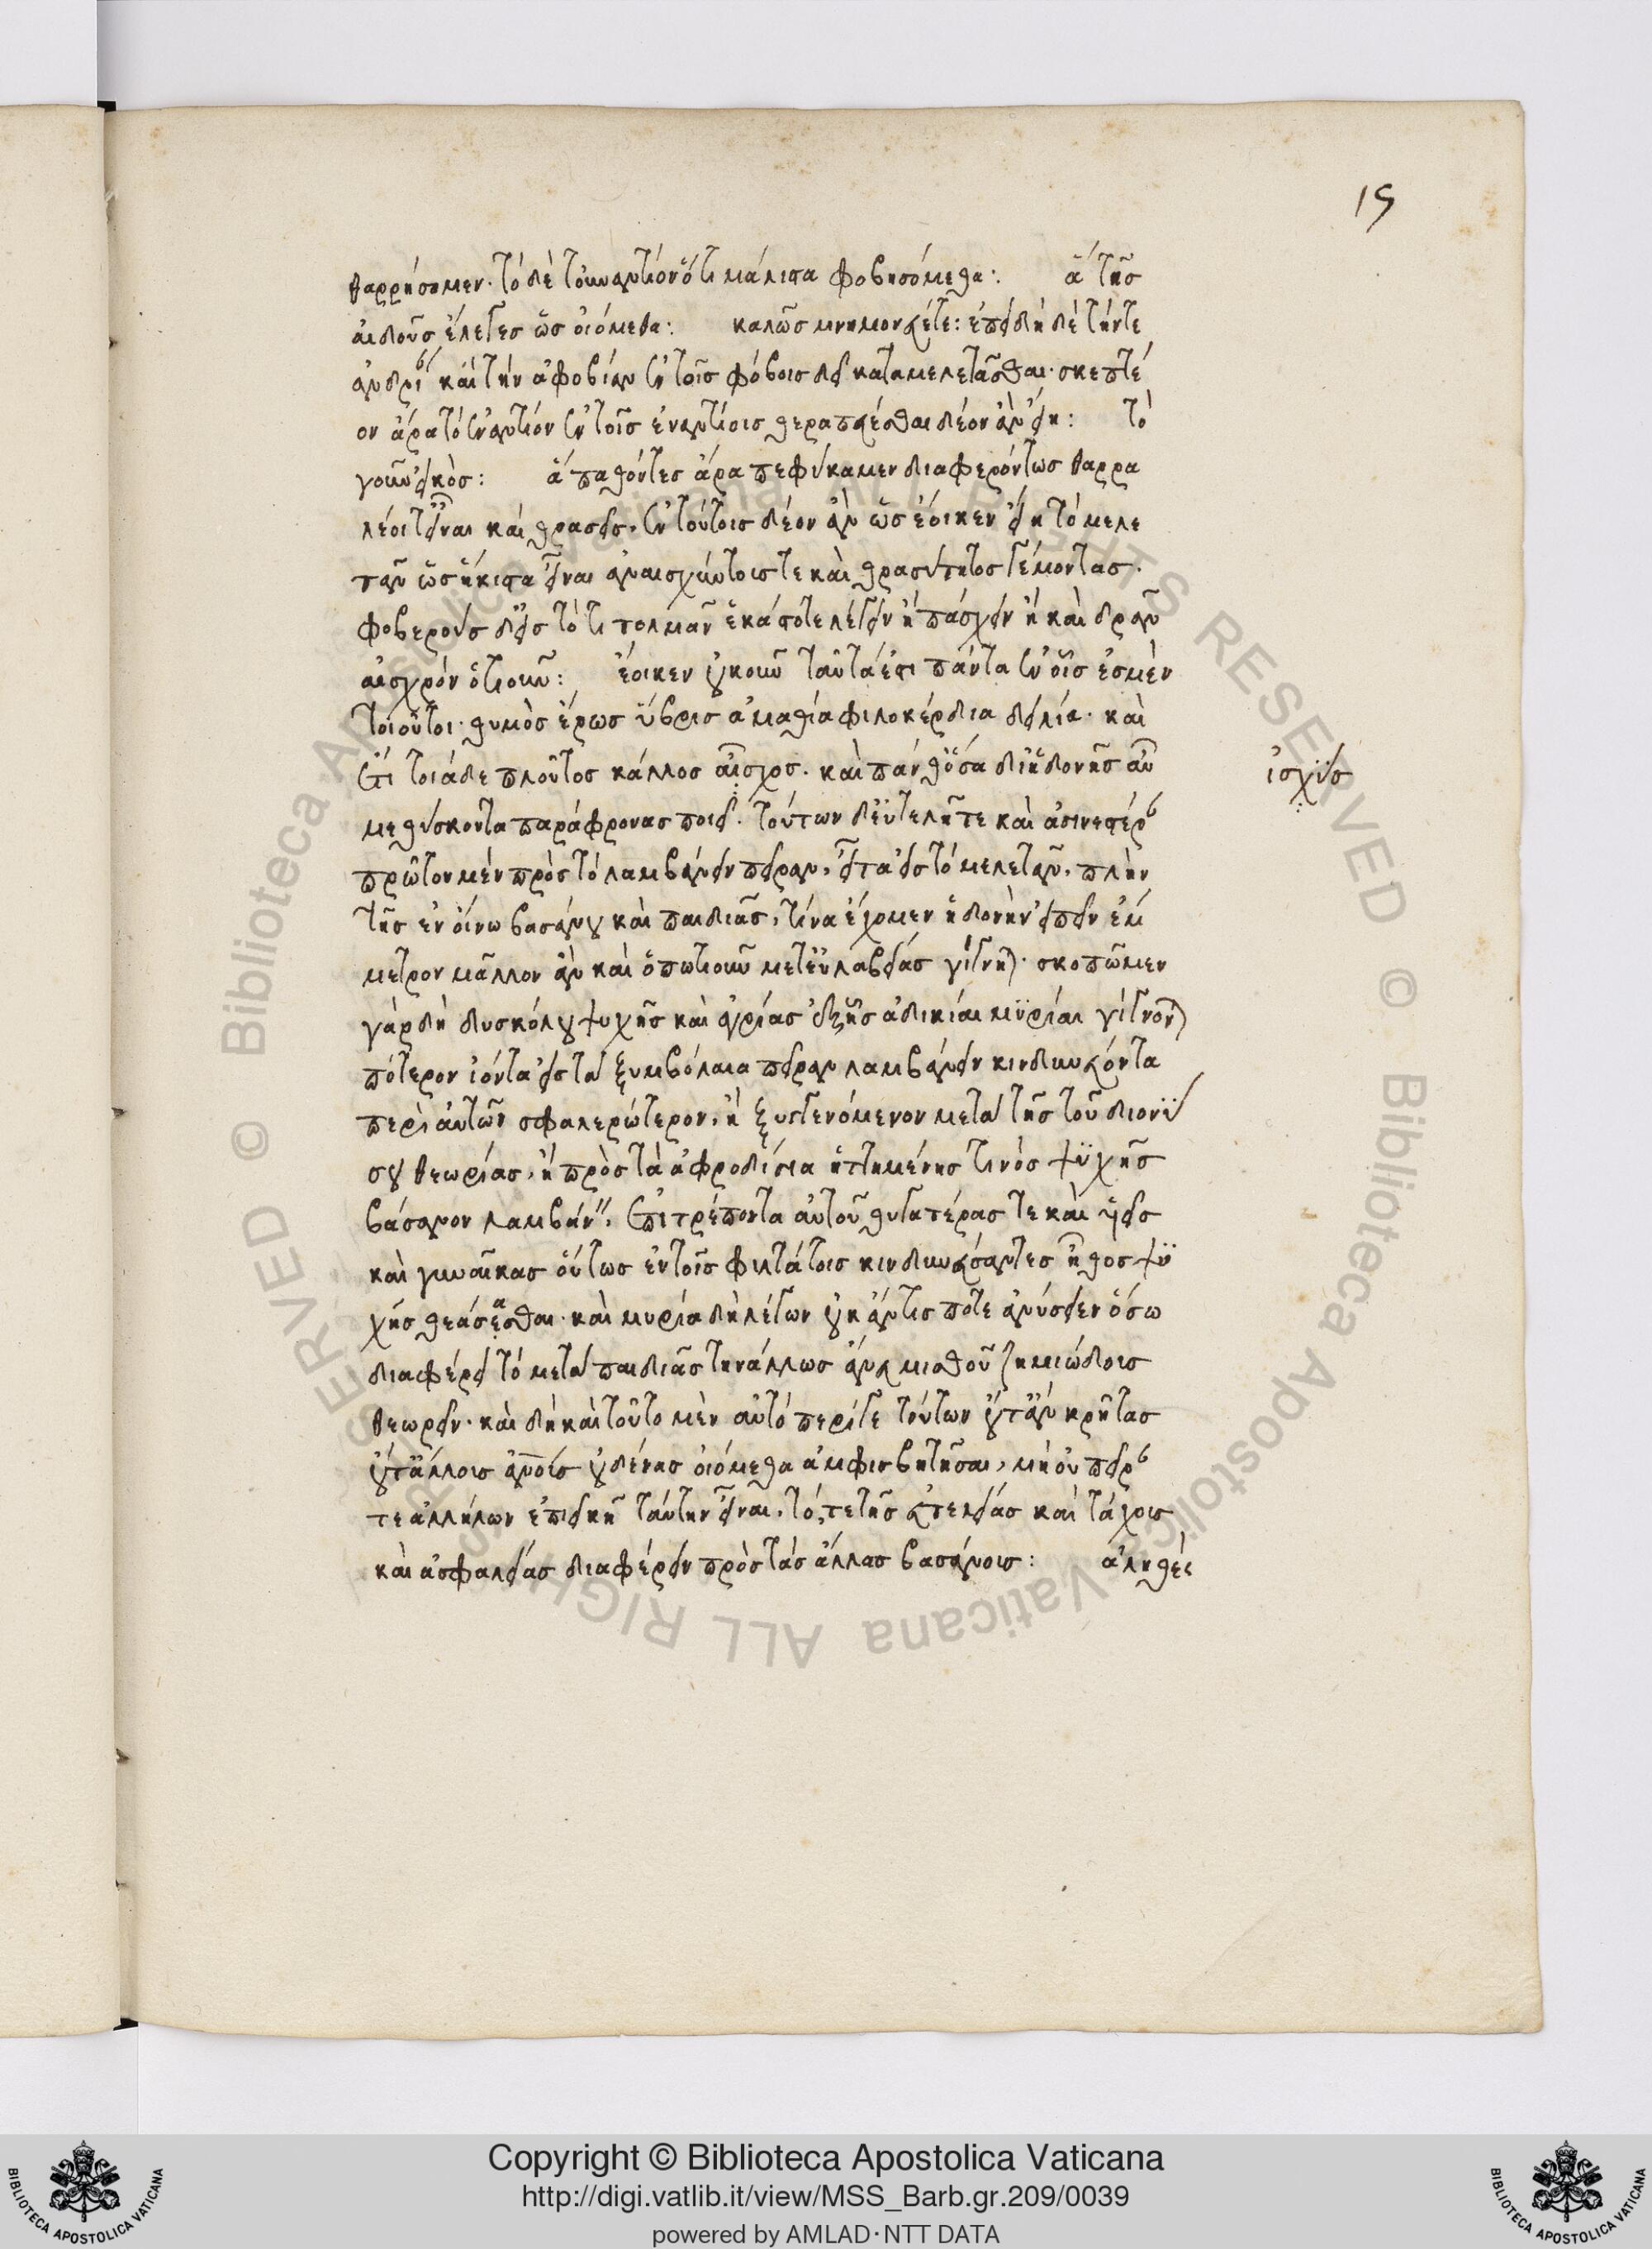 15
θαρρήσομεν· τὸ δὲ τοὐναντίον ὅτι μάλιστα φοβησόμεθα: ἃ τῆς
αἰδοῦς ἔλεγες ὡς οἰόμεθα: καλῶς μνημονεύετε: ἐπειδὴ δὲ τήν τε
ἀνδρίαν καὶ τὴν ἀφοβίαν ἐν τοῖς φόβοις δεῖ καταμελετᾶσθαι· σκεπτέ
ον ἆρα τὸ ἐναντίον ἐν τοῖς ἐναντίοις θεραπεύεσθαι δέον ἂν εἴη: τό
γ' οὖν εἰκός: ἃ παθόντες ἄρα πεφύκαμεν διαφερόντως θαρρα
λέοι τ' εἶναι καὶ θρασεῖς, ἐν τούτοις δέον ἂν ὡς ἔοικεν εἴη τὸ μελε
τᾶν ὡς ἥκιστα εἶναι ἀναισχύντοις τε καὶ θρασύτητος γέμοντας·
φοβεροὺς δ' εἰς τό τι τολμᾶν ἑκάστοτε λέγειν ἢ πάσχειν ἢ καὶ δρᾶν
αἰσχρὸν ὁτιοῦν: ἔοικεν οὐκοῦν ταῦτά ἐστι πάντα ἐν οἷς ἐσμὲν
τοιοῦτοι· θυμὸς ἔρως ὕβρις ἀμαθία φιλοκέρδια δειλία· καὶ
ἔτι τοιάδε πλοῦτος κάλλος αἶσχος· καὶ πάνθ' ὅσα δι' ἡδονῆς αὖ
ἰσχύς
μεθύσκοντα παράφρονας ποιεῖ· τούτων δ' εὐτελῆ τε καὶ ἀσινεστέραν
πρῶτον μὲν πρὸς τὸ λαμβάνειν πεῖραν, εἶτα εἰς τὸ μελετᾶν, πλὴν
τῆς ἐν οἴνω βασάνου καὶ παιδιᾶς, τίνα ἔχομεν ἡδονὴν εἰπεῖν ἔμ
μετρον μᾶλλον ἂν καὶ ὁπωτιοῦν μετ' εὐλαβείας γίγνηται· σκοπῶμεν
γὰρ δὴ δυσκόλου ψυχῆς καὶ ἀγρίας ἐξ ἧς ἀδικίαι μυρίαι γίγνονται
πότερον ἰόντα εἰς τὰ ξυμβόλαια πεῖραν λαμβάνειν κινδυνεύοντα
περὶ αὐτῶν σφαλερώτερον, ἢ ξυγγενόμενον μετὰ τῆς τοῦ διονύ
σου θεωρίας, ἢ πρὸς τὰ ἀφροδίσια ἡττημένης τινὸς ψυχῆς
βάσανον λαμβάνειν, ἐπιτρέποντα αὑτοῦ θυγατέρας τε καὶ υἱεῖς
καὶ γυναῖκας οὕτως ἐν τοῖς φιλτάτοις κινδυνεύσαντες ἦθος ψυ
χῆς θεάσεσθαι· καὶ μυρία δὴ λέγων οὐκ ἄν τις ποτε ἀνύσειεν ὅσω
διαφέρει τὸ μετὰ παιδιᾶς τὴν ἄλλως ἄνευ μισθοῦ ζημιώδοις
θεωρεῖν· καὶ δὴ καὶ τοῦτο μὲν αὐτὸ περί γε τούτων οὔτ' ἂν κρῆτας
οὔτ' ἄλλοις ἀν οἷς οὐδένας οἰόμεθα ἀμφισβητῆσαι, μὴ οὐ πεῖράν
τε ἀλλήλων ἐπιεικῆ ταύτην εἶναι, τό, τε τῆς εὐτελείας καὶ τάχοις
καὶ ἀσφαλείας διαφέρειν πρὸς τὰς ἄλλας βασάνοις: ἀληθές
Copyright © Biblioteca Apostolica Vaticana
http://digi.vatlib.it/view/MSS_Barb.gr.209/0039
powered by AMLAD · NTT DATA